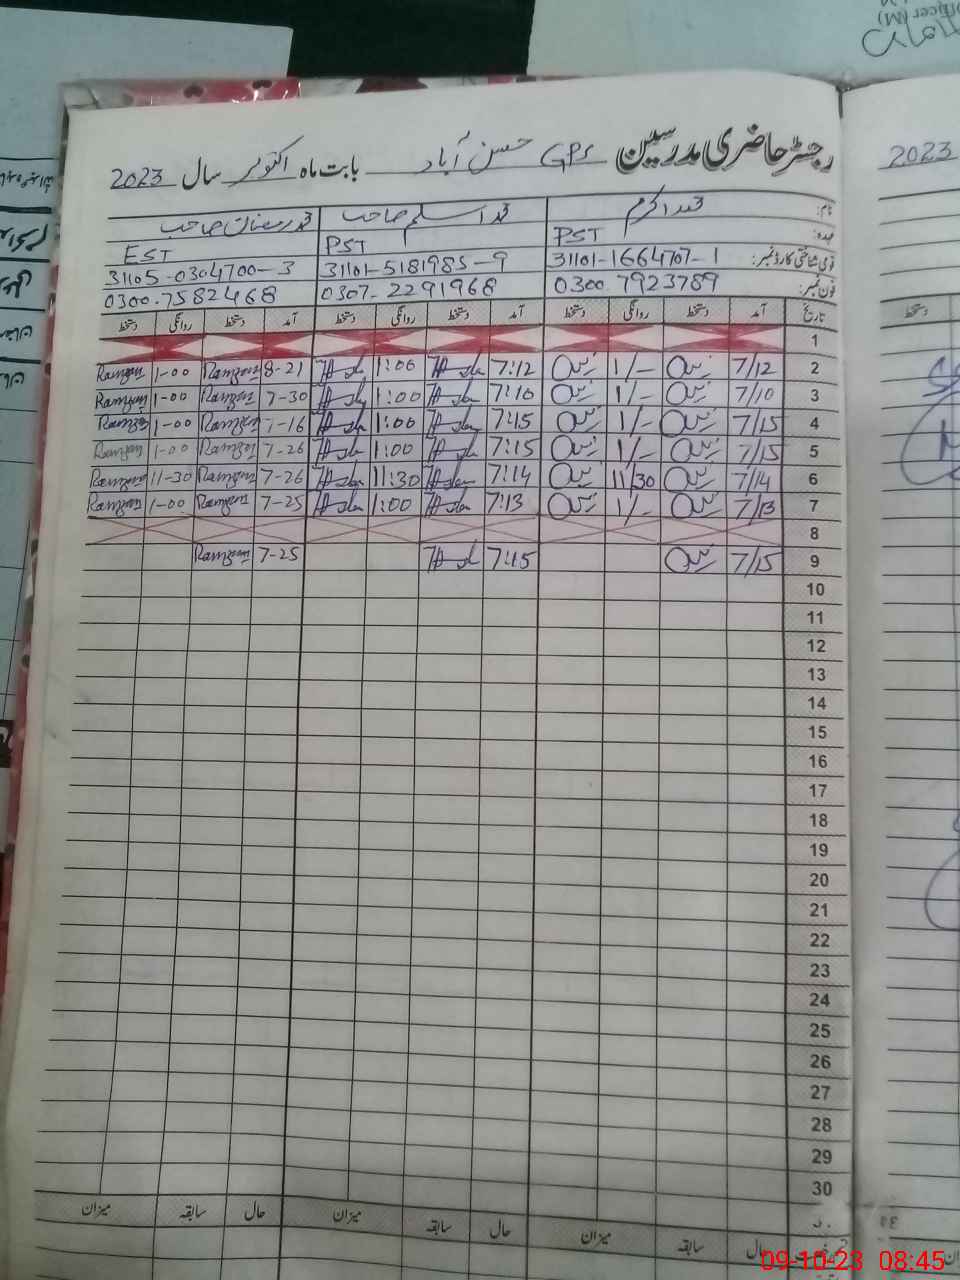 رجسٹر حاضری مدرسین GPS حسن آباد بابت ماہ اکتوبر سال 2023
نام: محمد اکرم محمد اسلم صاحب محمد رمضان صاحب
عہدہ: PST PST EST
قومی شناختی کارڈ نمبر: 31101-1664707-1 31101-5181985-9 31105-0304700-3
فون نمبر: 0300.7923789 0307-2291968 0300.7582468
تاریخ آمد دستخط روانگی دستخط آمد دستخط روانگی دستخط آمد دستخط روانگی دستخط
1
2 7/12 1/- 7:12 1:00 8-21 Ramzan 1-00 Ramzan
3 7/10 1/- 7:10 1:00 7-30 Ramzan 1-00 Ramzan
4 7/15 1/- 7:15 1:00 7-16 Ramzan 1-00 Ramzan
5 7/15 1/- 7:15 1:00 7-26 Ramzan 1-00 Ramzan
6 7/14 11/30 7:14 11:30 7-26 Ramzan 11-30 Ramzan
7 7/13 1/- 7:13 1:00 7-25 Ramzan 1-00 Ramzan
8
9 7/15 7:15 7-25 Ramzan
10
11
12
13
14
15
16
17
18
19
20
21
22
23
24
25
26
27
28
29
30
حال سابقہ میزان حال سابقہ میزان حال سابقہ میزان
2023
دستخط
09-10-23 08:45